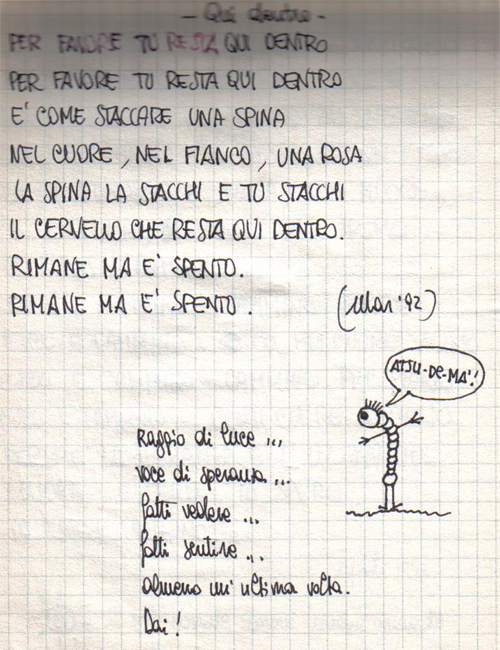 - Qui dentro -
PER FAVORE TU RESTA QUI DENTRO
PER FAVORE TU RESTA QUI DENTRO
E' COME STACCARE UNA SPINA
NEL CUORE, NEL FIANCO, UNA ROSA
LA SPINA LA STACCHI E TU STACCHI
IL CERVELLO CHE RESTA QUI DENTRO.
RIMANE MA E' SPENTO.
RIMANE MA E' SPENTO.
(Mar '92)
ATSU-DE-MA'!
Raggio di luce ...
voce di speranza ...
fatti vedere ...
fatti sentire ...
almeno un'ultima volta.
Dai!